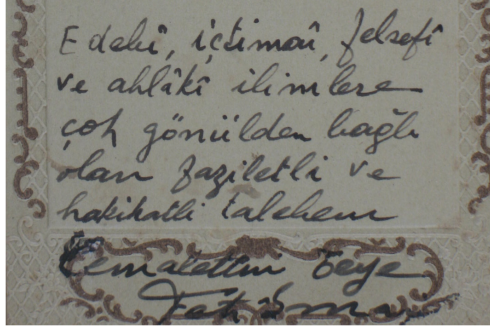 Edebî, içtimaî, felsefî
ve ahlâkî ilimlere
çok gönülden bağlı
olan faziletli ve
hakikatli talebem
Cemalettin Beye